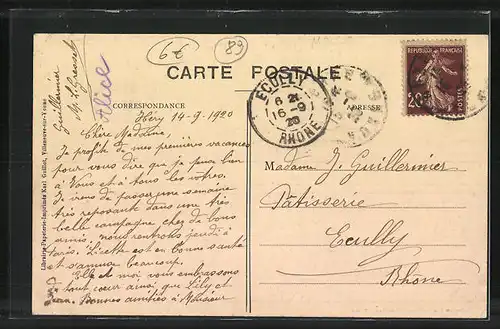 6€
89
CARTE POSTALE
CORRESPONDANCE
ADRESSE
REPUBLIQUE FRANÇAISE
20c
POSTES
ECULLY
6 21
16 - 9
20
RHONE
Alice
Guillermier
Héry 14-9-1920
Chère Madame,
Je profite de mes premières vacances
pour vous dire que je pense bien
à Vous et à tous les vôtres.
Je viens de passer une semaine
très reposante dans une très
belle campagne chez de bons
amis, nous rentrons jeudi à
Paris. Lisette est en bonne santé
et s'amuse beaucoup.
Elle et moi vous embrassons
de tout cœur ainsi que Lily et
Jean. Bonnes amitiés à Monsieur
Madame J. Guillermier
Pâtisserie
Ecully
Rhône
Librairie-Papeterie-Imprimée Karl Guillot, Villeneuve-sur-Yonne